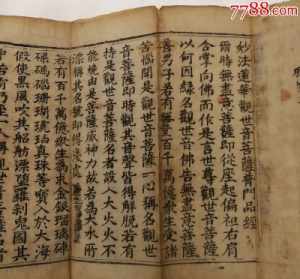 7788.com
妙法蓮華經觀世音菩薩普門品經
爾時無盡意菩薩即從座起偏袒右肩
合掌向佛而作是言世尊觀世音菩薩
以何因緣名觀世音佛告無盡意菩薩
善男子若有無量百千萬億衆生受諸
苦惱聞是觀世音菩薩一心稱名觀世
音菩薩即時觀其音聲皆得解脫若有
持是觀世音菩薩名者設入大火火不
能燒由是菩薩威神力故若爲大水所
漂稱其名號即得淺處
若有百千萬億衆生爲求金銀瑠璃硨
磲碼碯珊瑚琥珀真珠等寶入於大海
假使黑風吹其船舫漂墮羅刹鬼國其
中若有乃至一人稱觀世